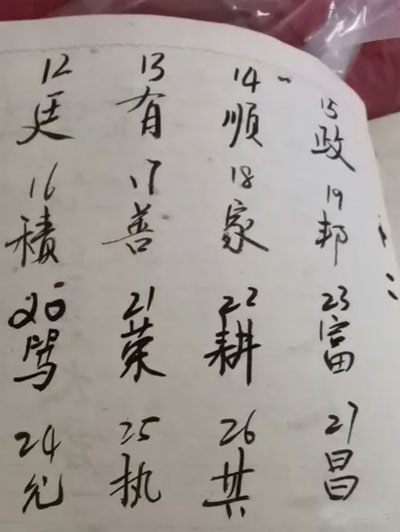 12 13 14 15
廷 有 順 政
16 17 18 19
積 善 家 邦
20 21 22 23
荣 耕 富
24 25 26 27
允 执 共 昌